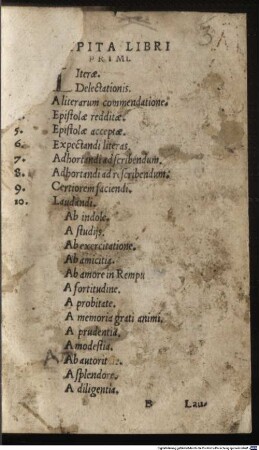 PITA LIBRI
PRIMI.
Iteræ.
Delectationis.
A literarum commendatione.
Epistolæ redditæ.
5. Epistolæ acceptæ.
6. Expectandi literas.
7. Adhortandi ad scribendum.
8. Adhortandi ad rescribendum.
9. Certiorem faciendi.
10. Laudandi.
Ab indole.
A studijs.
Ab exercitatione.
Ab amicitia.
Ab amore in Rempu
A fortitudine.
A probitate.
A memoria grati animi.
A prudentia.
A modestia.
Ab autorit
A splendore.
A diligentia.
B Lau-